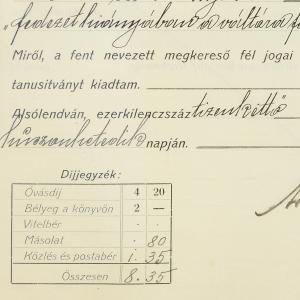 "fedezet hiányában a váltóra
Miről, a fent nevezett megkereső fél jogai
tanusitványt kiadtam.
Alsólendván, ezerkilenczszáz tizenkettő
huszonhetedik napján.
Díjjegyzék:
Óvásdíj 4 20
Bélyeg a könyvön 2 —
Vitelbér . .
Másolat . 80
Közlés és postabér 1. 35
Összesen 8. 35